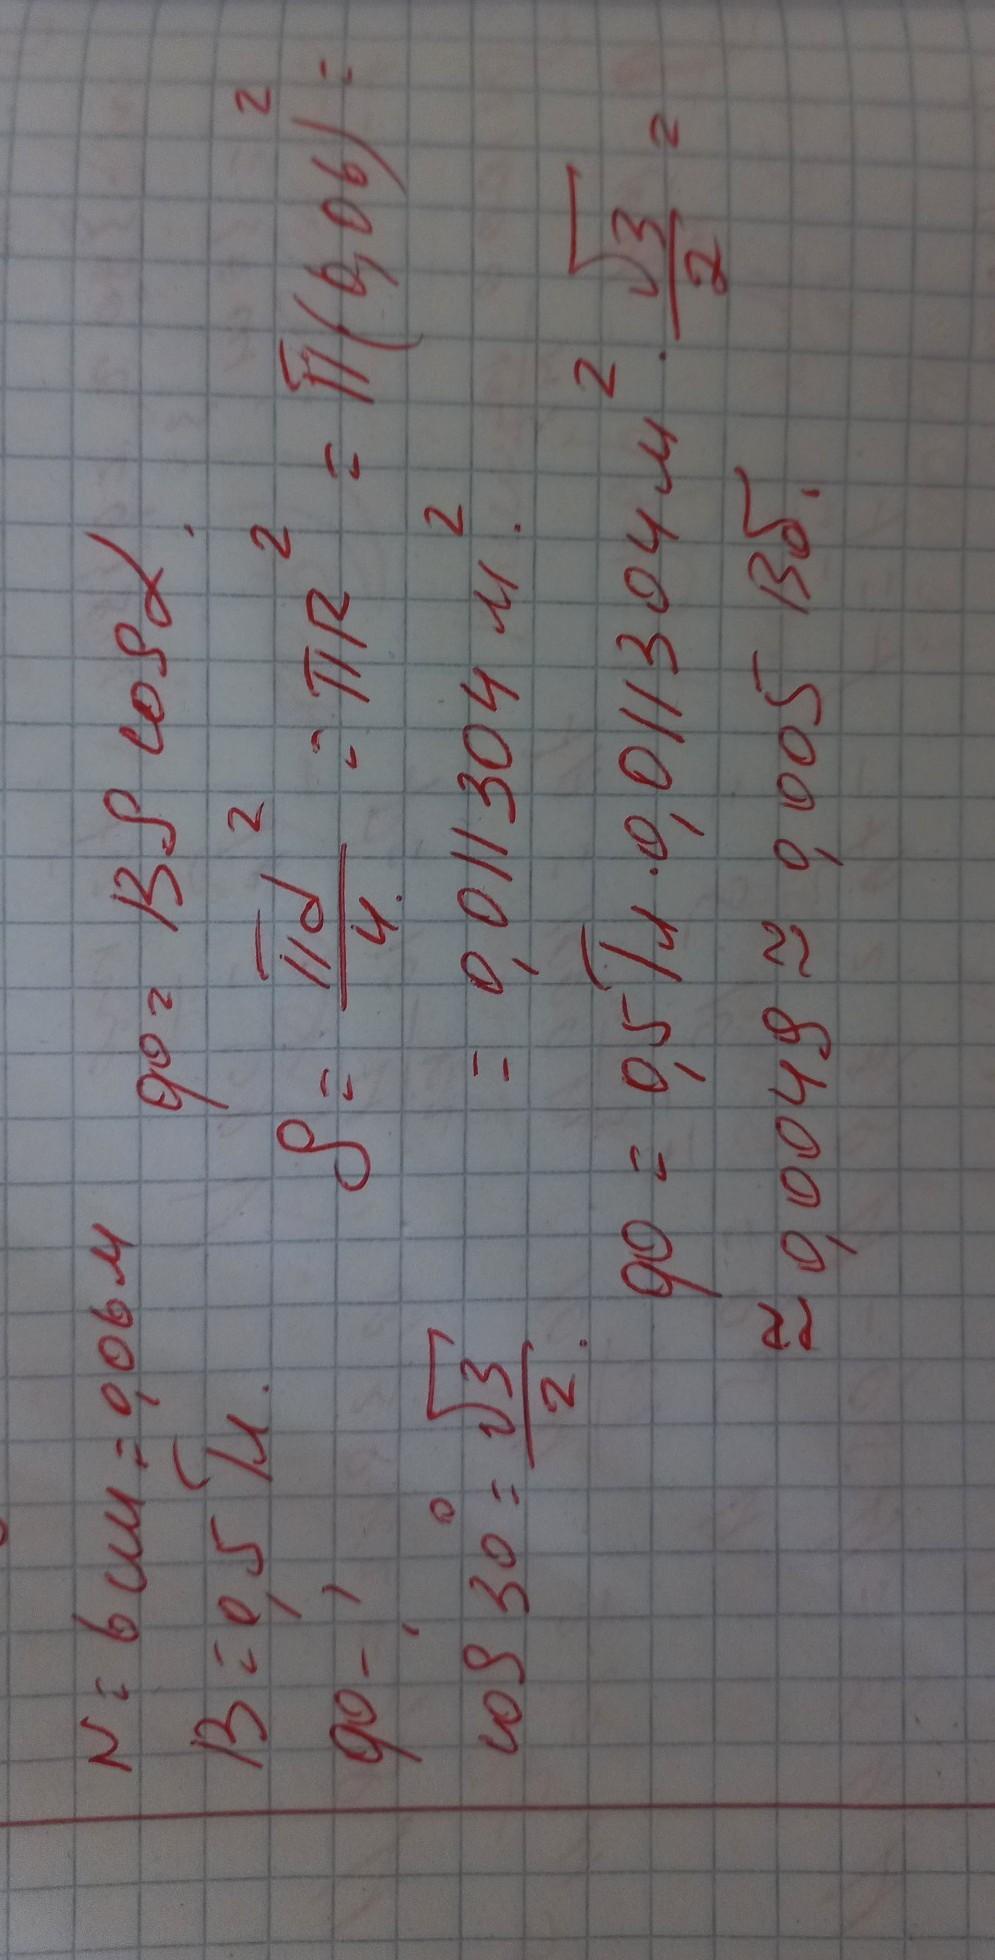 r = 6 см = 0,06 м
B = 0,5 Тл.
φ - ?
cos 30° = √3/2.
φ = BS cosα.
S = πd²/4. = πR² = π(0,06)² =
= 0,011304 м².
φ = 0,5 Тл · 0,011304 м² · √3/2 ≈
≈ 0,0049 ≈ 0,005 Вб.